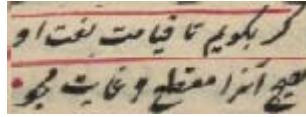 گر بگویم تا قیامت نعت او
هیچ آنرا مقطع و غایت مجو